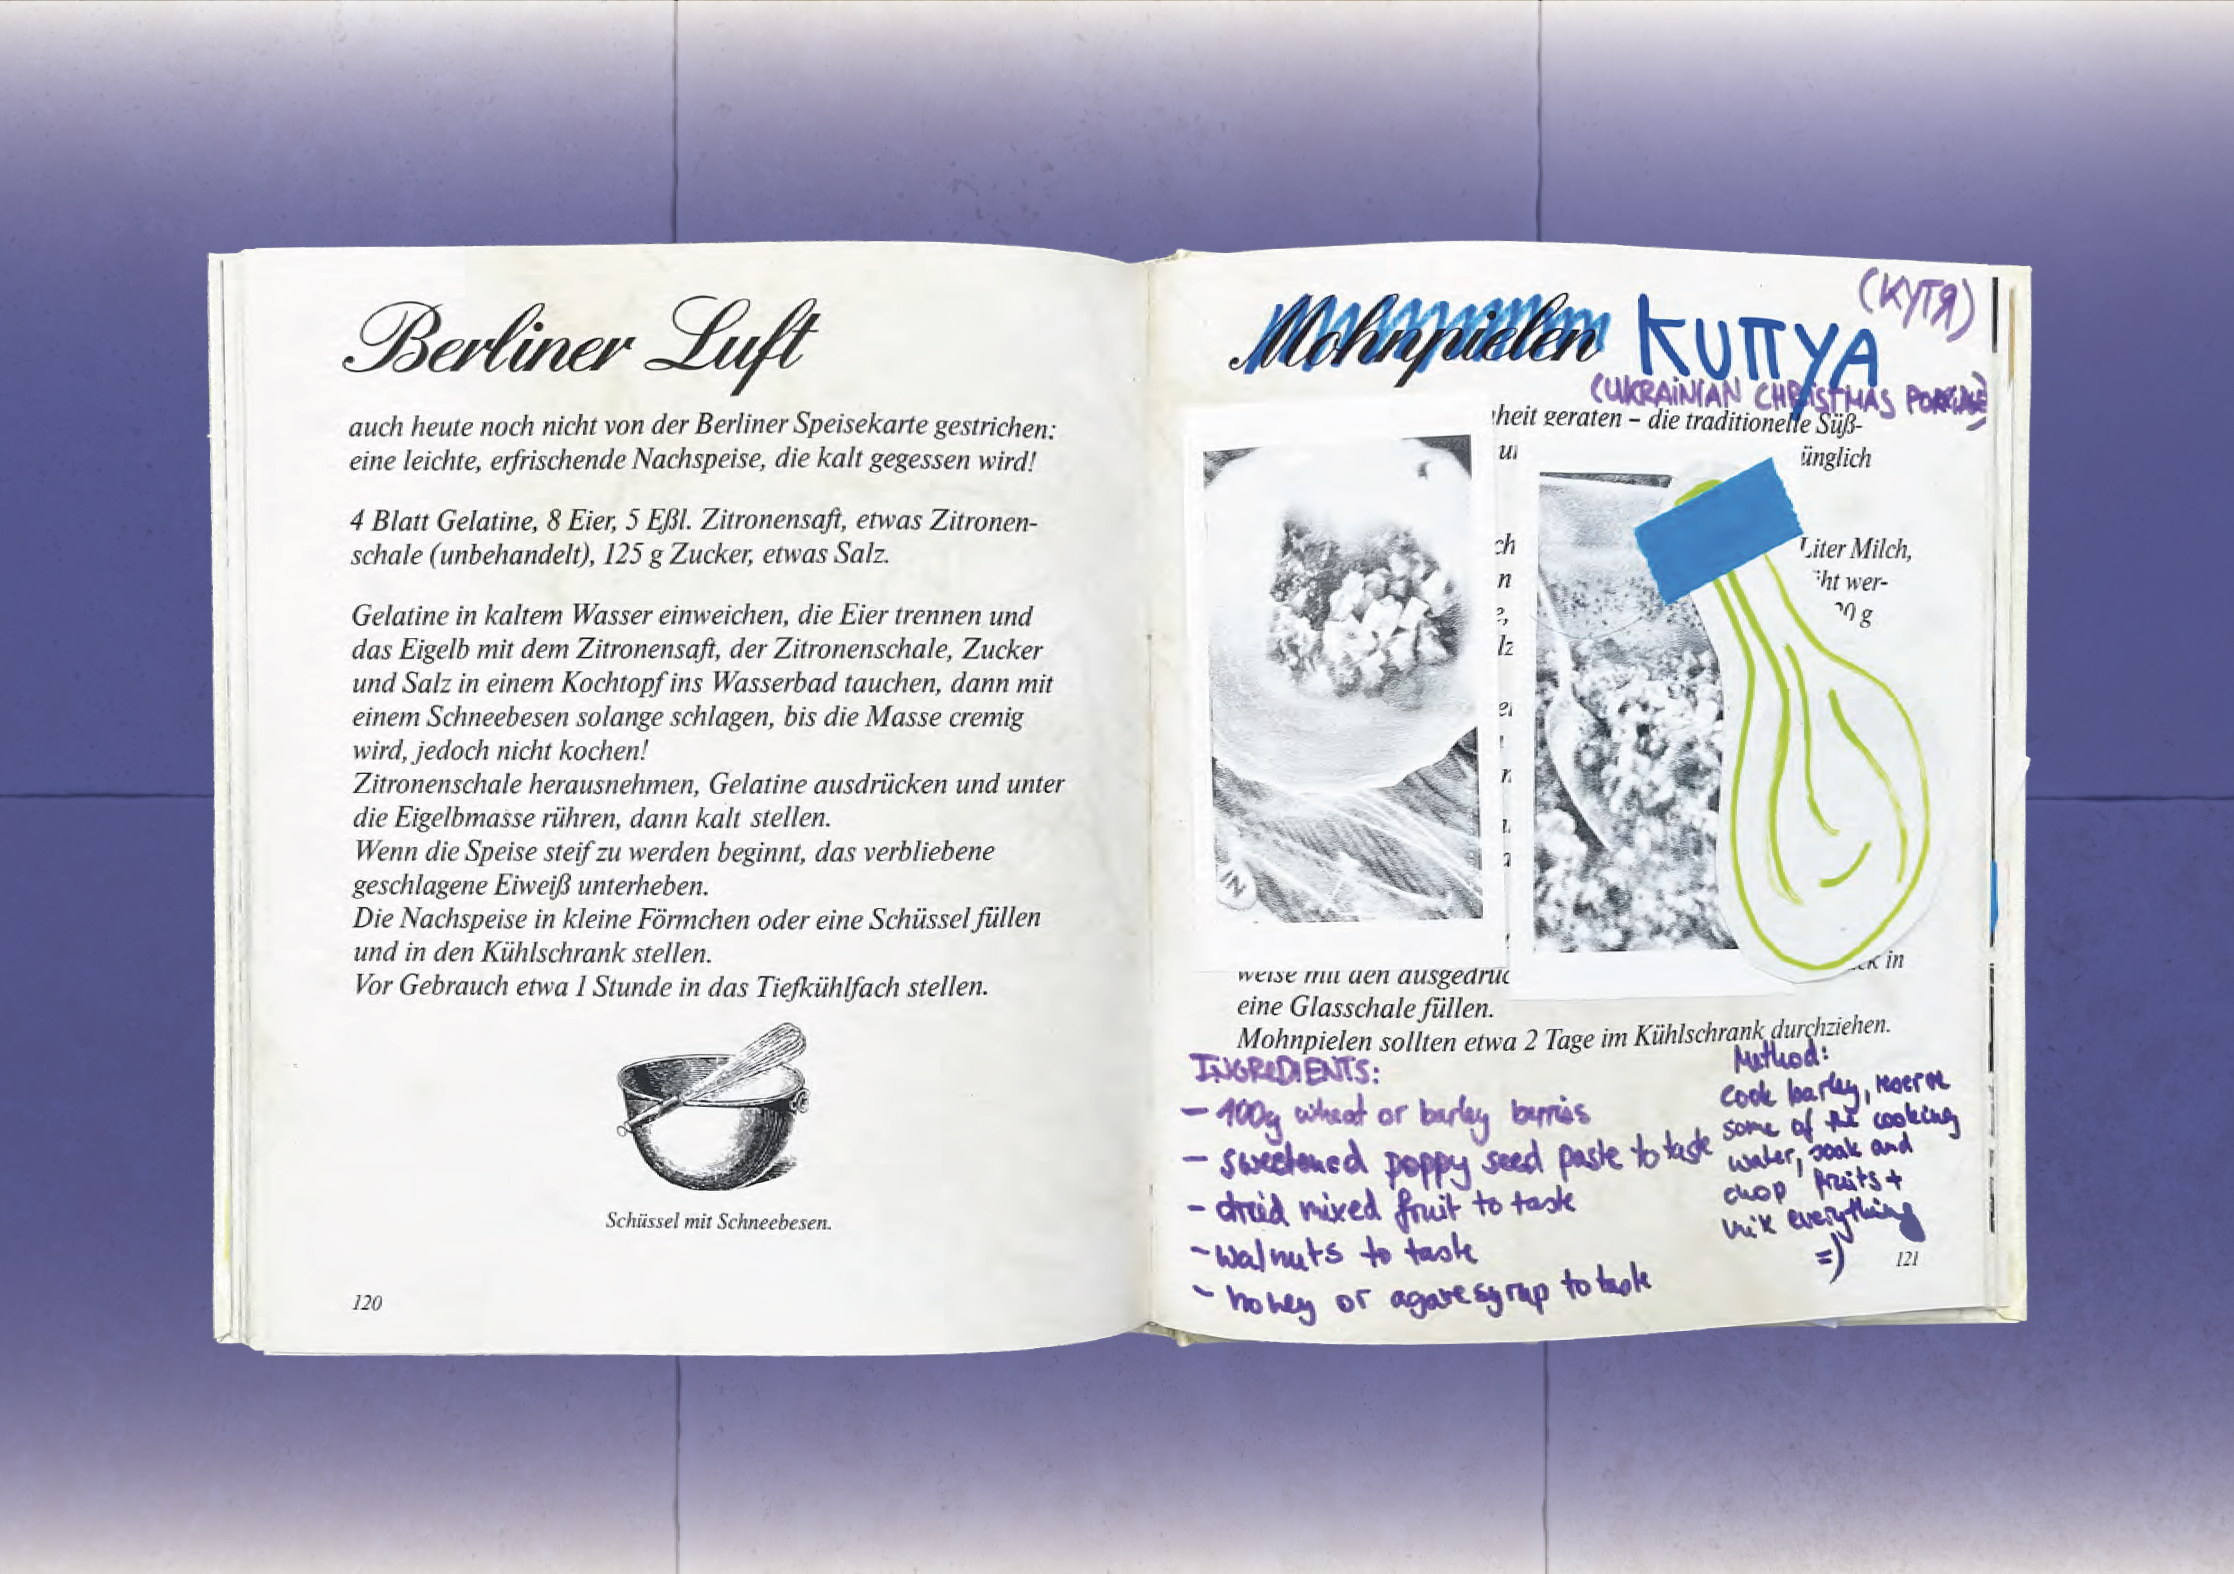 Berliner Luft
auch heute noch nicht von der Berliner Speisekarte gestrichen:
eine leichte, erfrischende Nachspeise, die kalt gegessen wird!
4 Blatt Gelatine, 8 Eier, 5 Eßl. Zitronensaft, etwas Zitronen-
schale (unbehandelt), 125 g Zucker, etwas Salz.
Gelatine in kaltem Wasser einweichen, die Eier trennen und
das Eigelb mit dem Zitronensaft, der Zitronenschale, Zucker
und Salz in einem Kochtopf ins Wasserbad tauchen, dann mit
einem Schneebesen solange schlagen, bis die Masse cremig
wird, jedoch nicht kochen!
Zitronenschale herausnehmen, Gelatine ausdrücken und unter
die Eigelbmasse rühren, dann kalt stellen.
Wenn die Speise steif zu werden beginnt, das verbliebene
geschlagene Eiweiß unterheben.
Die Nachspeise in kleine Förmchen oder eine Schüssel füllen
und in den Kühlschrank stellen.
Vor Gebrauch etwa 1 Stunde in das Tiefkühlfach stellen.
Schüssel mit Schneebesen.
120
(КУТЯ)
Mohnpielen KUTTYA
(UKRAINIAN CHRISTMAS PORRIDGE)
heit geraten – die traditionelle Süß-
ünglich
ch Liter Milch,
n ht wer-
e, 0 g
lz
weise mit den ausgedrüc in
eine Glasschale füllen.
Mohnpielen sollten etwa 2 Tage im Kühlschrank durchziehen.
INGREDIENTS:
- 400g wheat or barley berries
- sweetened poppy seed paste to taste
- dried mixed fruit to taste
- walnuts to taste
- honey or agave syrup to taste
Method:
cook barley, reserve
some of the cooking
water, soak and
chop fruits +
mix everything
=)
121